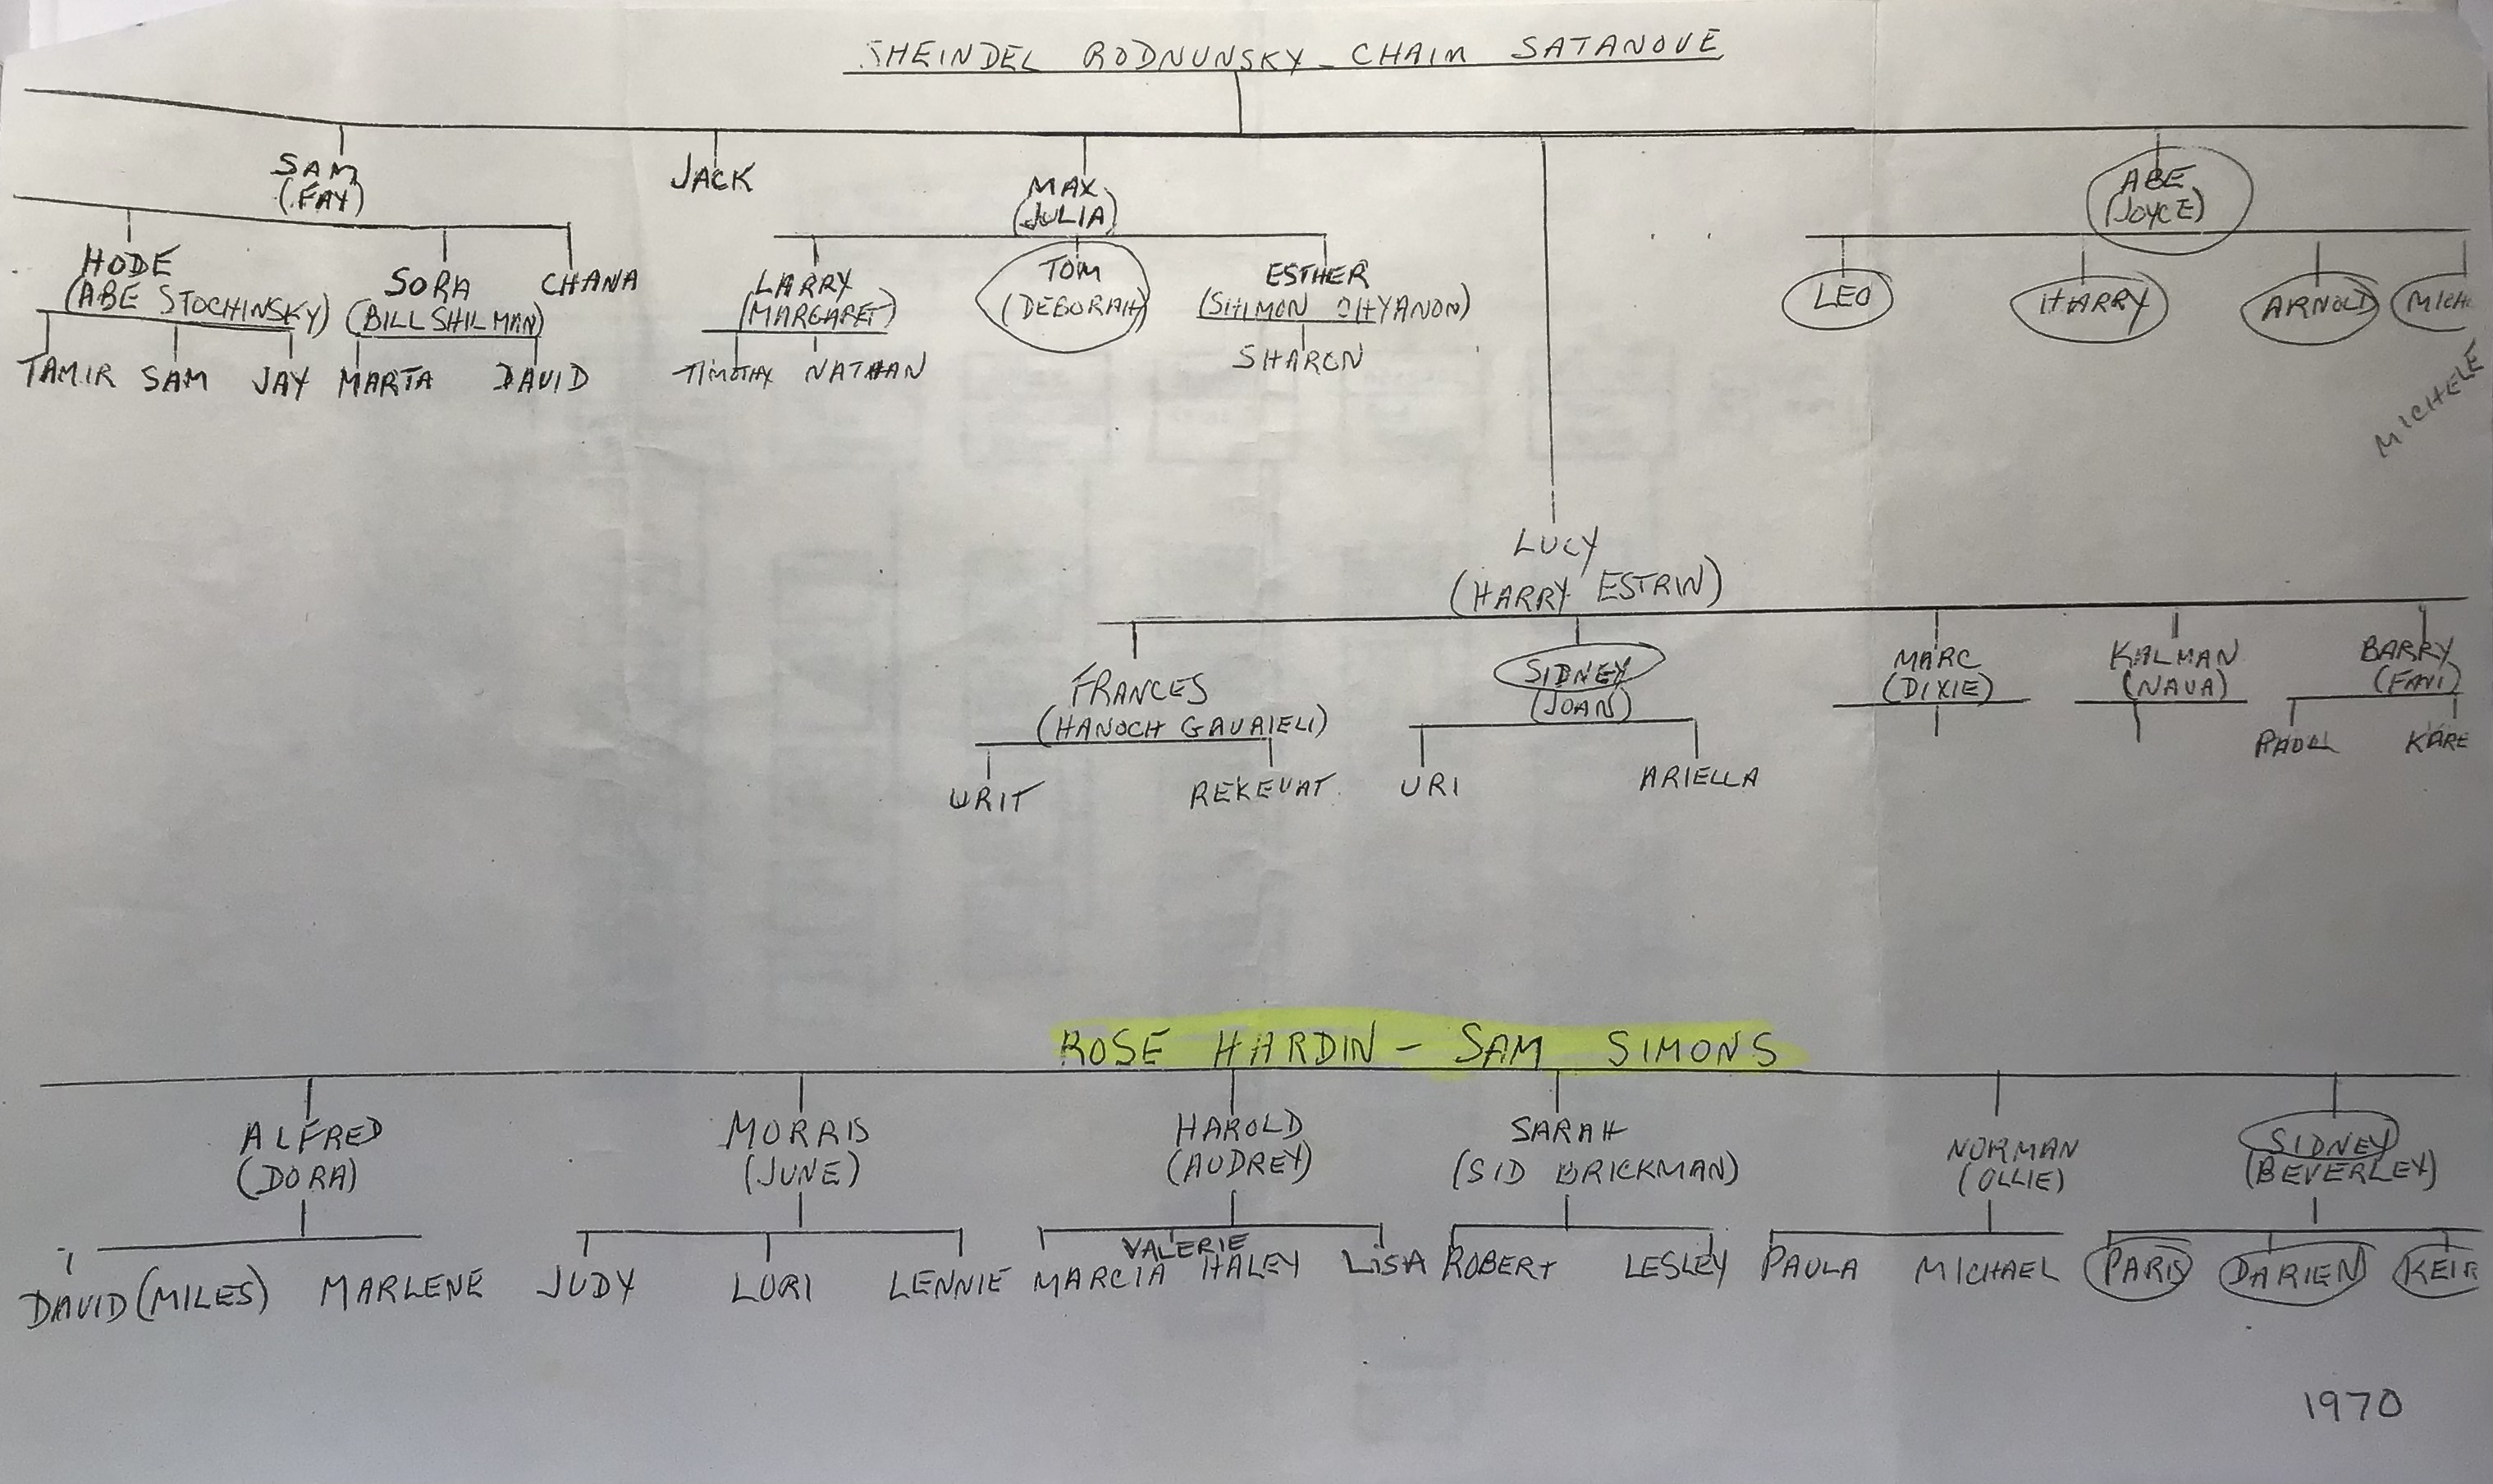 SHEINDEL RODNUNSKY - CHAIM SATANOVE
SAM JACK MAX ABE
(FAY) (JULIA) (JOYCE)
HODE SORA CHANA LARRY TOM ESTHER LEO HARRY ARNOLD MICH
(ABE STOCHINSKY) (BILL SHILMAN) (MARGARET) (DEBORAH) (SHIMON
TAMIR SAM JAY MARTA DAVID TIMOTHY NATHAN SHARON
MICHELE
LUCY
(HARRY ESTRIN)
FRANCES SIDNEY MARC KALMAN BARRY
(HANOCH GAVRIELI) (JOAN) (DIXIE) (NAVA)
URIT REKEVAT URI ARIELLA KARE
ROSE HARDIN - SAM SIMONS
ALFRED MORRIS HAROLD SARAH NORMAN SIDNEY
(DORA) (JUNE) (AUDREY) (SID BRICKMAN) (OLLIE) (BEVERLEY)
VALERIE
DAVID (MILES) MARLENE JUDY LORI LENNIE MARCIA HALEY LISA ROBERT LESLEY PAULA MICHAEL PARIS DARIEN
1970